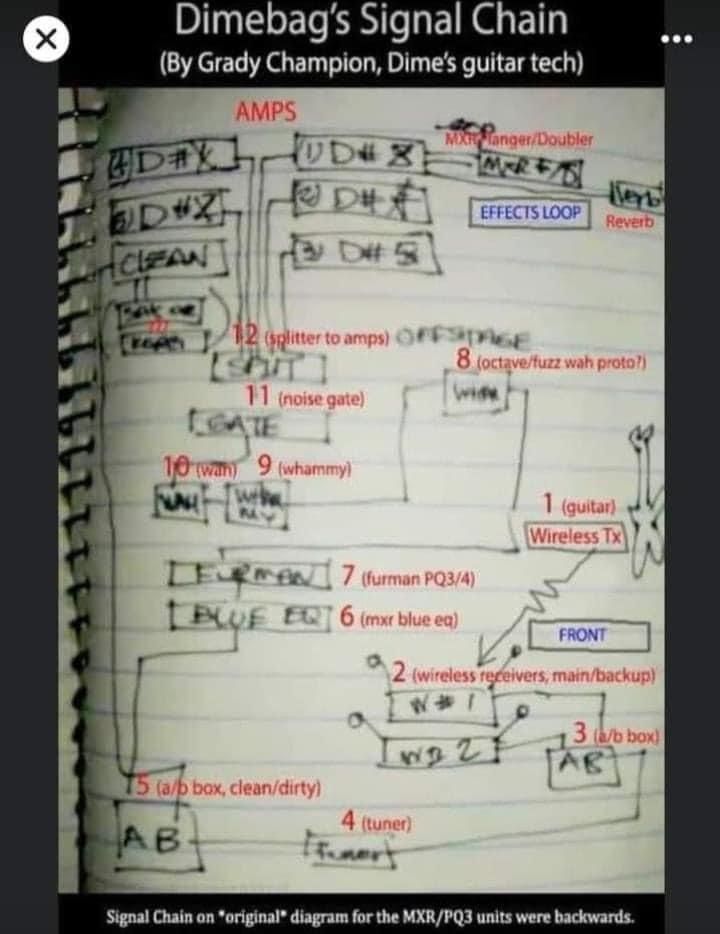 Dimebag's Signal Chain
(By Grady Champion, Dime's guitar tech)
AMPS
MXR Flanger/Doubler
4) D#
1) D# 8
MXR F/D
D#
2) D#
EFFECTS LOOP
Verb
Reverb
CLEAN
3) D# 8
12 (splitter to amps)
OFFSTAGE
SPLIT
8 (octave/fuzz wah proto?)
11 (noise gate)
GATE
10 (wah) 9 (whammy)
WAH
WHA
MY
1 (guitar)
Wireless Tx
FURMAN
7 (furman PQ3/4)
BLUE EQ
6 (mxr blue eq)
FRONT
2 (wireless receivers, main/backup)
W # 1
3 (a/b box)
W # 2
AB
5 (a/b box, clean/dirty)
4 (tuner)
AB
Tuner
Signal Chain on *original* diagram for the MXR/PQ3 units were backwards.